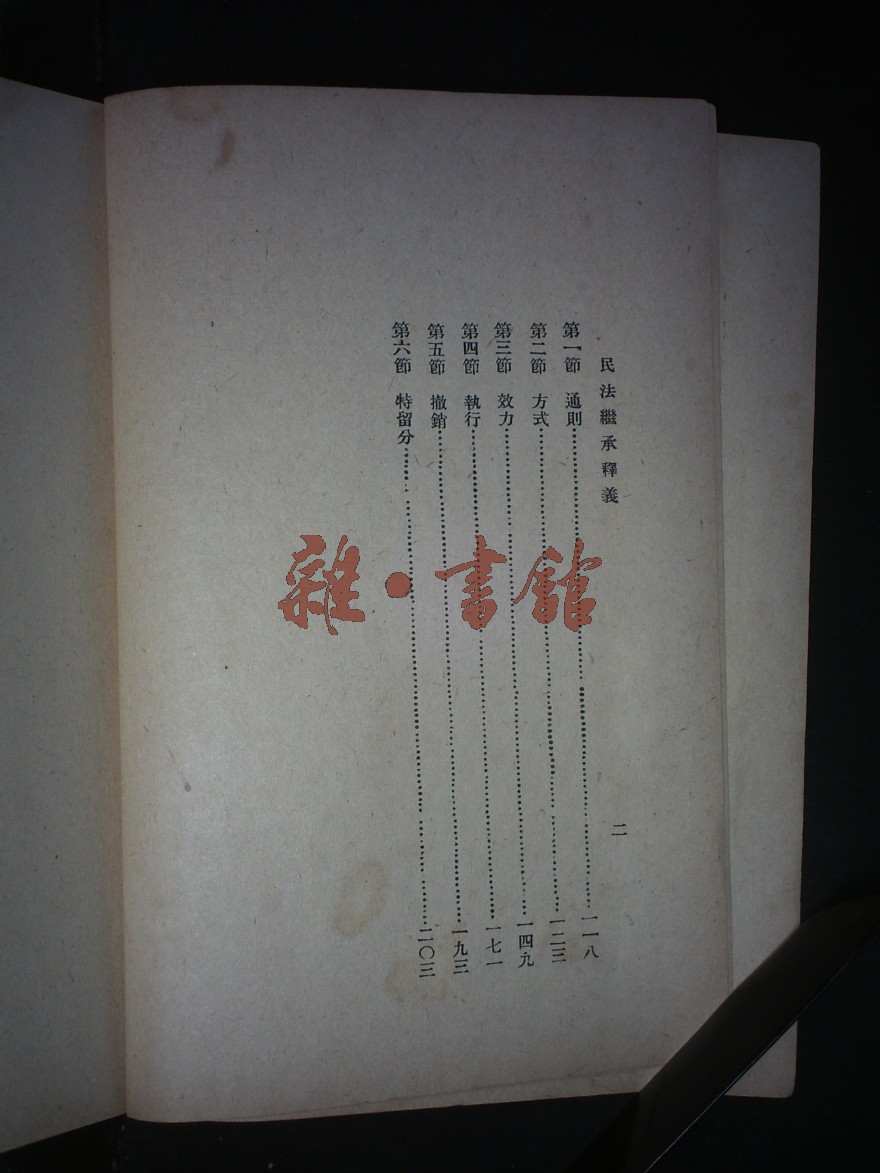 民法繼承釋義
二
第一節　通則……一一八
第二節　方式……一二三
第三節　效力……一四九
第四節　執行……一七一
第五節　撤銷……一九三
第六節　特留分……二〇三
雜·書館